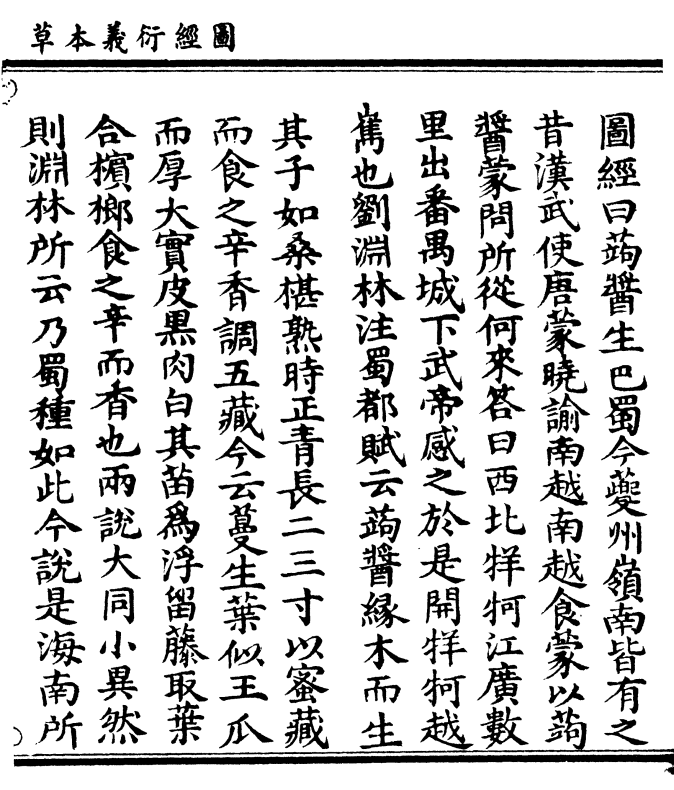 圖經衍義本草
圖經曰蒟醬生巴蜀今夔州嶺南皆有之
昔漢武使唐蒙曉諭南越南越食蒙以蒟
醬蒙問所從何來答曰西北牂牁江廣數
里出番禺城下武帝感之於是開牂牁越
嶲也劉淵林注蜀都賦云蒟醬緣木而生
其子如桑椹熟時正青長二三寸以蜜藏
而食之辛香調五藏今云蔓生葉似王瓜
而厚大實皮黑肉白其苗爲浮留藤取葉
合檳榔食之辛而香也兩說大同小異然
則淵林所云乃蜀種如此今說是海南所